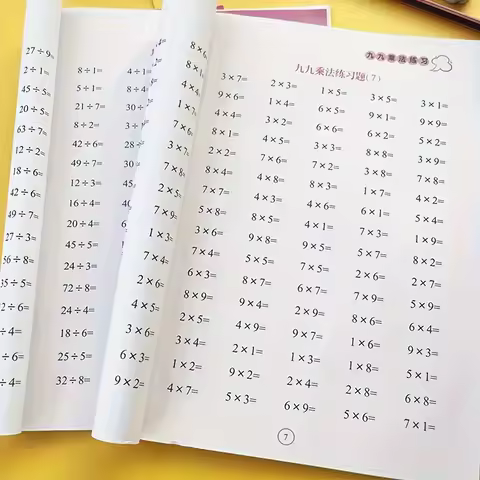 27÷9=
2÷1= 8÷1= 4÷1=
45÷5= 5÷1= 8÷4
20÷5= 21÷7= 30÷
63÷7= 8÷2= 3÷
12÷2= 42÷6= 28÷
18÷6= 49÷7= 30
42÷6= 12÷3= 45
49÷7= 16÷4=
27÷3= 20÷4=
56÷8= 45÷5=
35÷5= 24÷3=
2÷6= 72÷8=
÷4= 24÷4=
÷6= 18÷6=
÷4= 25÷5=
32÷8=
8×6
8×1
4×4
1×7
7×6
3×7
7×8
2×5
7×9=
1×3=
7×4=
2×6=
4×5=
3×6=
6×3=
9×2=
九九乘法练习
九九乘法练习题(7)
3×7= 2×3= 1×5= 3×5= 3×1=
9×6= 1×4= 6×5= 9×1= 9×9=
4×4= 3×2= 6×6= 6×2= 5×2=
8×1= 4×5= 3×3= 8×8= 3×9=
2×2= 7×6= 7×2= 3×8= 7×8=
8×4= 4×8= 8×3= 1×7= 4×2=
7×7= 4×3= 4×6= 6×1= 5×4=
5×8= 8×5= 4×1= 7×3= 1×9=
3×6= 9×8= 9×5= 5×7= 8×2=
7×4= 5×9= 7×5= 2×6= 2×7=
6×3= 8×7= 6×7= 7×9= 5×9=
8×9= 9×4= 2×8= 8×6= 6×4=
2×5= 4×9= 9×7= 1×6= 9×3=
3×4= 2×1= 1×3= 1×8= 5×1=
1×2= 9×2= 2×4= 2×8= 6×8=
4×7= 5×3= 6×9= 5×6= 7×1=
7